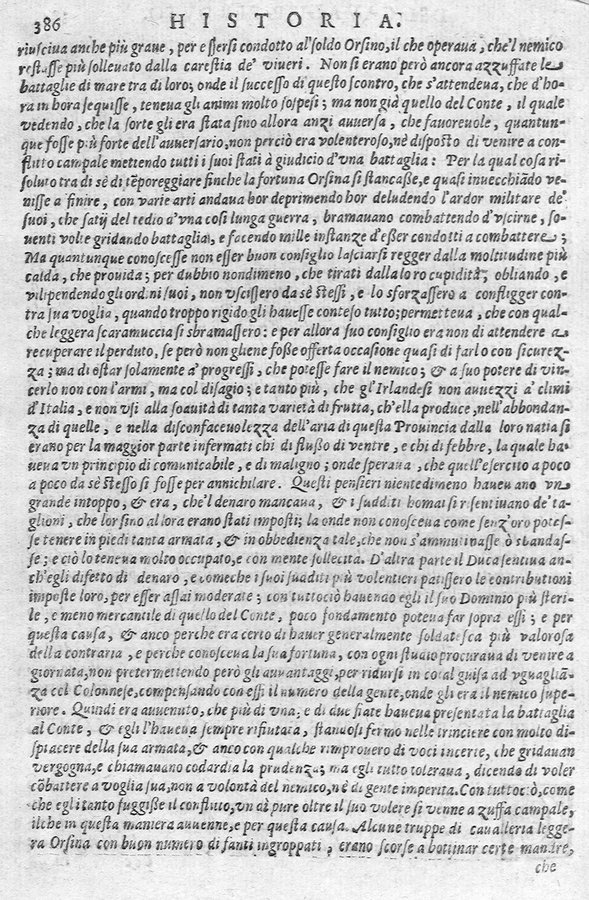 386 HISTORIA.
riusciua anche più graue, per essersi condotto al'soldo Orsino, il che operaua, che'l nemico
restasse più solleuato dalla carestia de' viueri. Non si erano però ancora azzuffate le
battaglie di mare tra di loro; onde il successo di questo scontro, che s'attendeua, che d'ho-
ra in hora seguisse, teneua gli animi molto sospesi; ma non già quello del Conte, il quale
vedendo, che la sorte gli era stata sino allora anzi auuersa, che fauoreuole, quantun-
que fosse più forte dell'auuersario, non perciò era volenteroso, nè disposto di venire a con-
flitto campale mettendo tutti i suoi stati à giudicio d'vna battaglia: Per la qual cosa ri-
soluto tra di sè di tẽporeggiare finche la fortuna Orsina si stancasse, e quasi inuecchiãdo ve-
nisse a finire, con varie arti andaua hor deprimendo hor deludendo l'ardor militare de'
suoi, che satij del tedio d'vna così lunga guerra, bramauano combattendo d'vscirne, so-
uenti volte gridando battaglia, e facendo mille instanze d'esser condotti a combattere;
Ma quantunque conoscesse non esser buon consiglio lasciarsi regger dalla moltitudine più
calda, che prouida; per dubbio nondimeno, che tirati dalla loro cupidità, obliando, e
vilipendendo gli ordini suoi, non vscissero da sè stessi, e lo sforzassero a confligger con-
tra sua voglia, quando troppo rigido gli hauesse conteso tutto; permetteua, che con qual-
che leggera scaramuccia si sbramassero: e per allora suo consiglio era non di attendere a
recuperare il perduto, se però non gliene fosse offerta occasione quasi di farlo con sicurez-
za; ma di ostar solamente a' progressi, che potesse fare il nemico; & a suo potere di vin-
cerlo non con l'armi, ma col disagio; e tanto più, che gl'Irlandesi non auuezzi a' climi
d'Italia, e non vsi alla soauità di tanta varietà di frutta, ch'ella produce, nell'abbondan-
za di quelle, e nella disconfaceuolezza dell'aria di questa Prouincia dalla loro natia si
erano per la maggior parte infermati chi di flusso di ventre, e chi di febbre, la quale ha-
ueua vn principio di comunicabile, e di maligno; onde speraua, che quell'esercito a poco
a poco da sè stesso si fosse per annichilare. Questi pensieri nientedimeno haueuano vn
grande intoppo, & era, che'l denaro mancaua, & i sudditi homai si risentiuano de' ta-
glioni, che lor sino allora erano stati imposti; la onde non conosceua come senz'oro potes-
se tenere in piedi tanta armata, & in obbedienza tale, che non s'ammutinasse ò sbandas-
se; e ciò lo teneua molto occupato, e con mente sollecita. D'altra parte il Duca sentiua an-
ch'egli difetto di denaro, e comeche i suoi sudditi più volentieri patissero le contributioni
imposte loro, per esser assai moderate; con tuttociò hauendo egli il suo Dominio più steri-
le, e meno mercantile di quello del Conte, poco fondamento poteua far sopra essi; e per
questa causa, & anco perche era certo di hauer generalmente soldatesca più valorosa
della contraria, e perche conosceua la sua fortuna, con ogni studio procuraua di venire a
giornata, non pretermettendo però gli auuantaggi, per ridursi in cotal guisa ad vguagliã-
za col Colonnese, compensando con essi il numero della gente, onde gli era il nemico supe-
riore. Quindi era auuenuto, che più di vna, e di due fiate haueua presentata la battaglia
al Conte, & egli l'haueua sempre rifiutata, standosi fermo nelle trinciere con molto di-
spiacere della sua armata, & anco con qualche rimprouero di voci incerte, che gridauan
vergogna, e chiamauano codardia la prudenza; ma egli tutto toleraua, dicendo di voler
cõbattere a voglia sua, non a volontà del nemico, nè di gente imperita. Con tuttociò, come
che egli tanto fuggisse il conflitto, vn dì pure oltre il suo volere si venne a zuffa campale,
ilche in questa maniera auuenne, e per questa causa. Alcune truppe di caualleria legge-
ra Orsina con buon numero di fanti ingroppati, erano scorse a bottinar certe mandre,
che